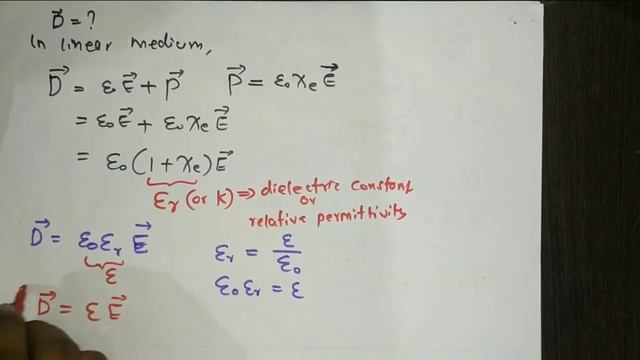 D⃗ = ?
In linear medium,
D⃗ = εE⃗ + P⃗    P⃗ = ε₀χₑE⃗
= ε₀E⃗ + ε₀χₑE⃗
= ε₀(1 + χₑ)E⃗
εᵣ (or K) ⇒ dielectric constant
or
relative permittivity
D⃗ = ε₀εᵣ E⃗
ε
D⃗ = εE⃗
εᵣ = ε/ε₀
ε₀εᵣ = ε